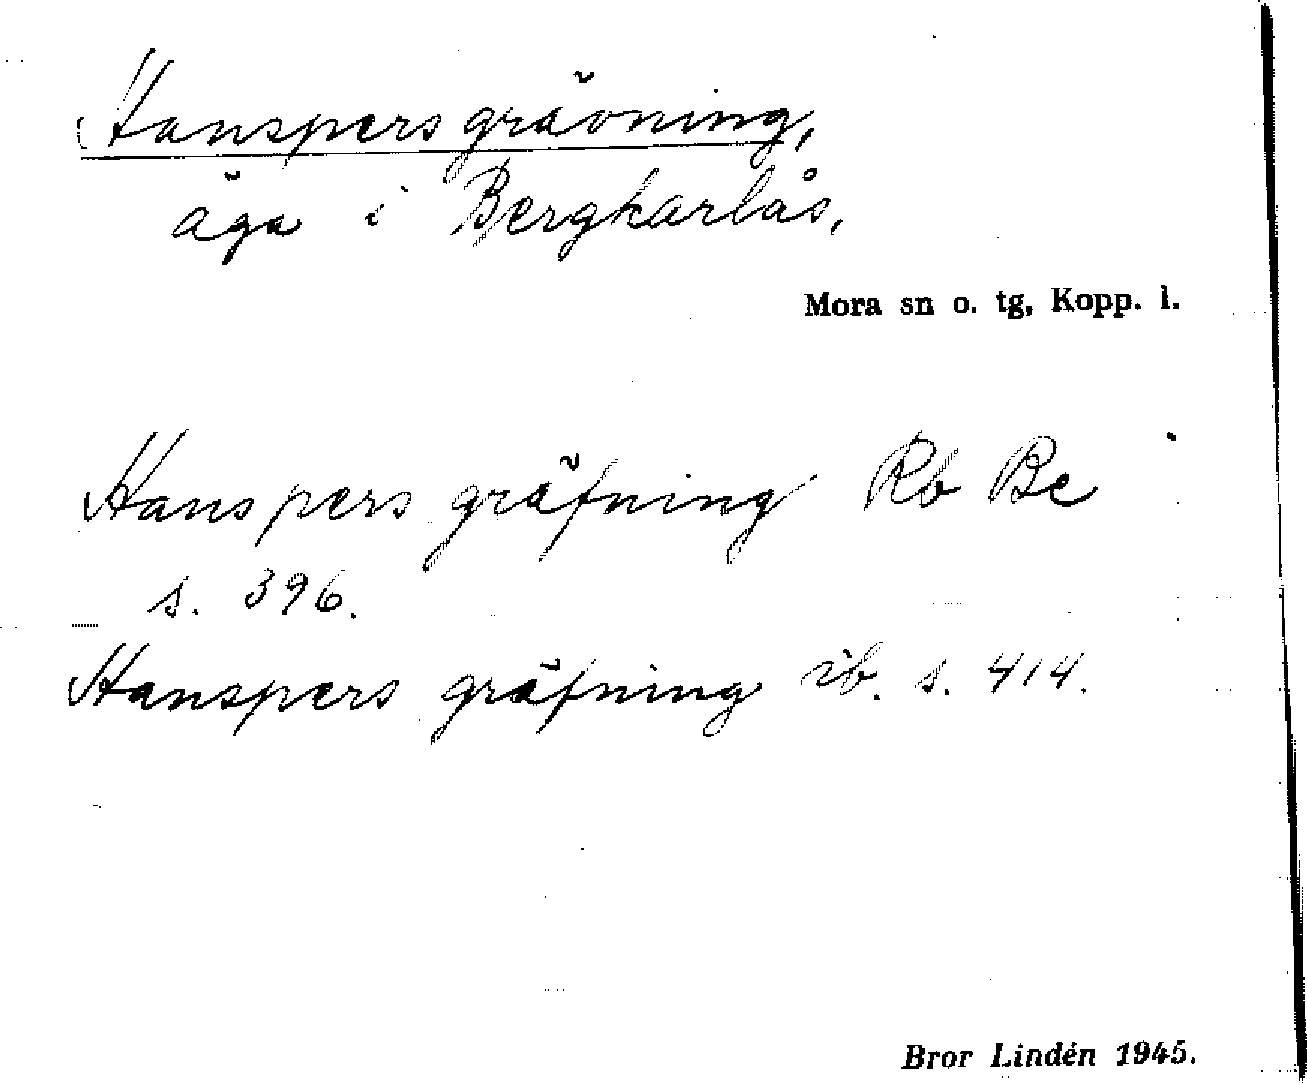 Hanspersgrävning,
äga i Bergkarlås,
Mora sn o. tg, Kopp. l.
Hans pers gräfning Rb Be
s. 396.
Hanspers gräfning ib. s. 414.
Bror Lindén 1945.